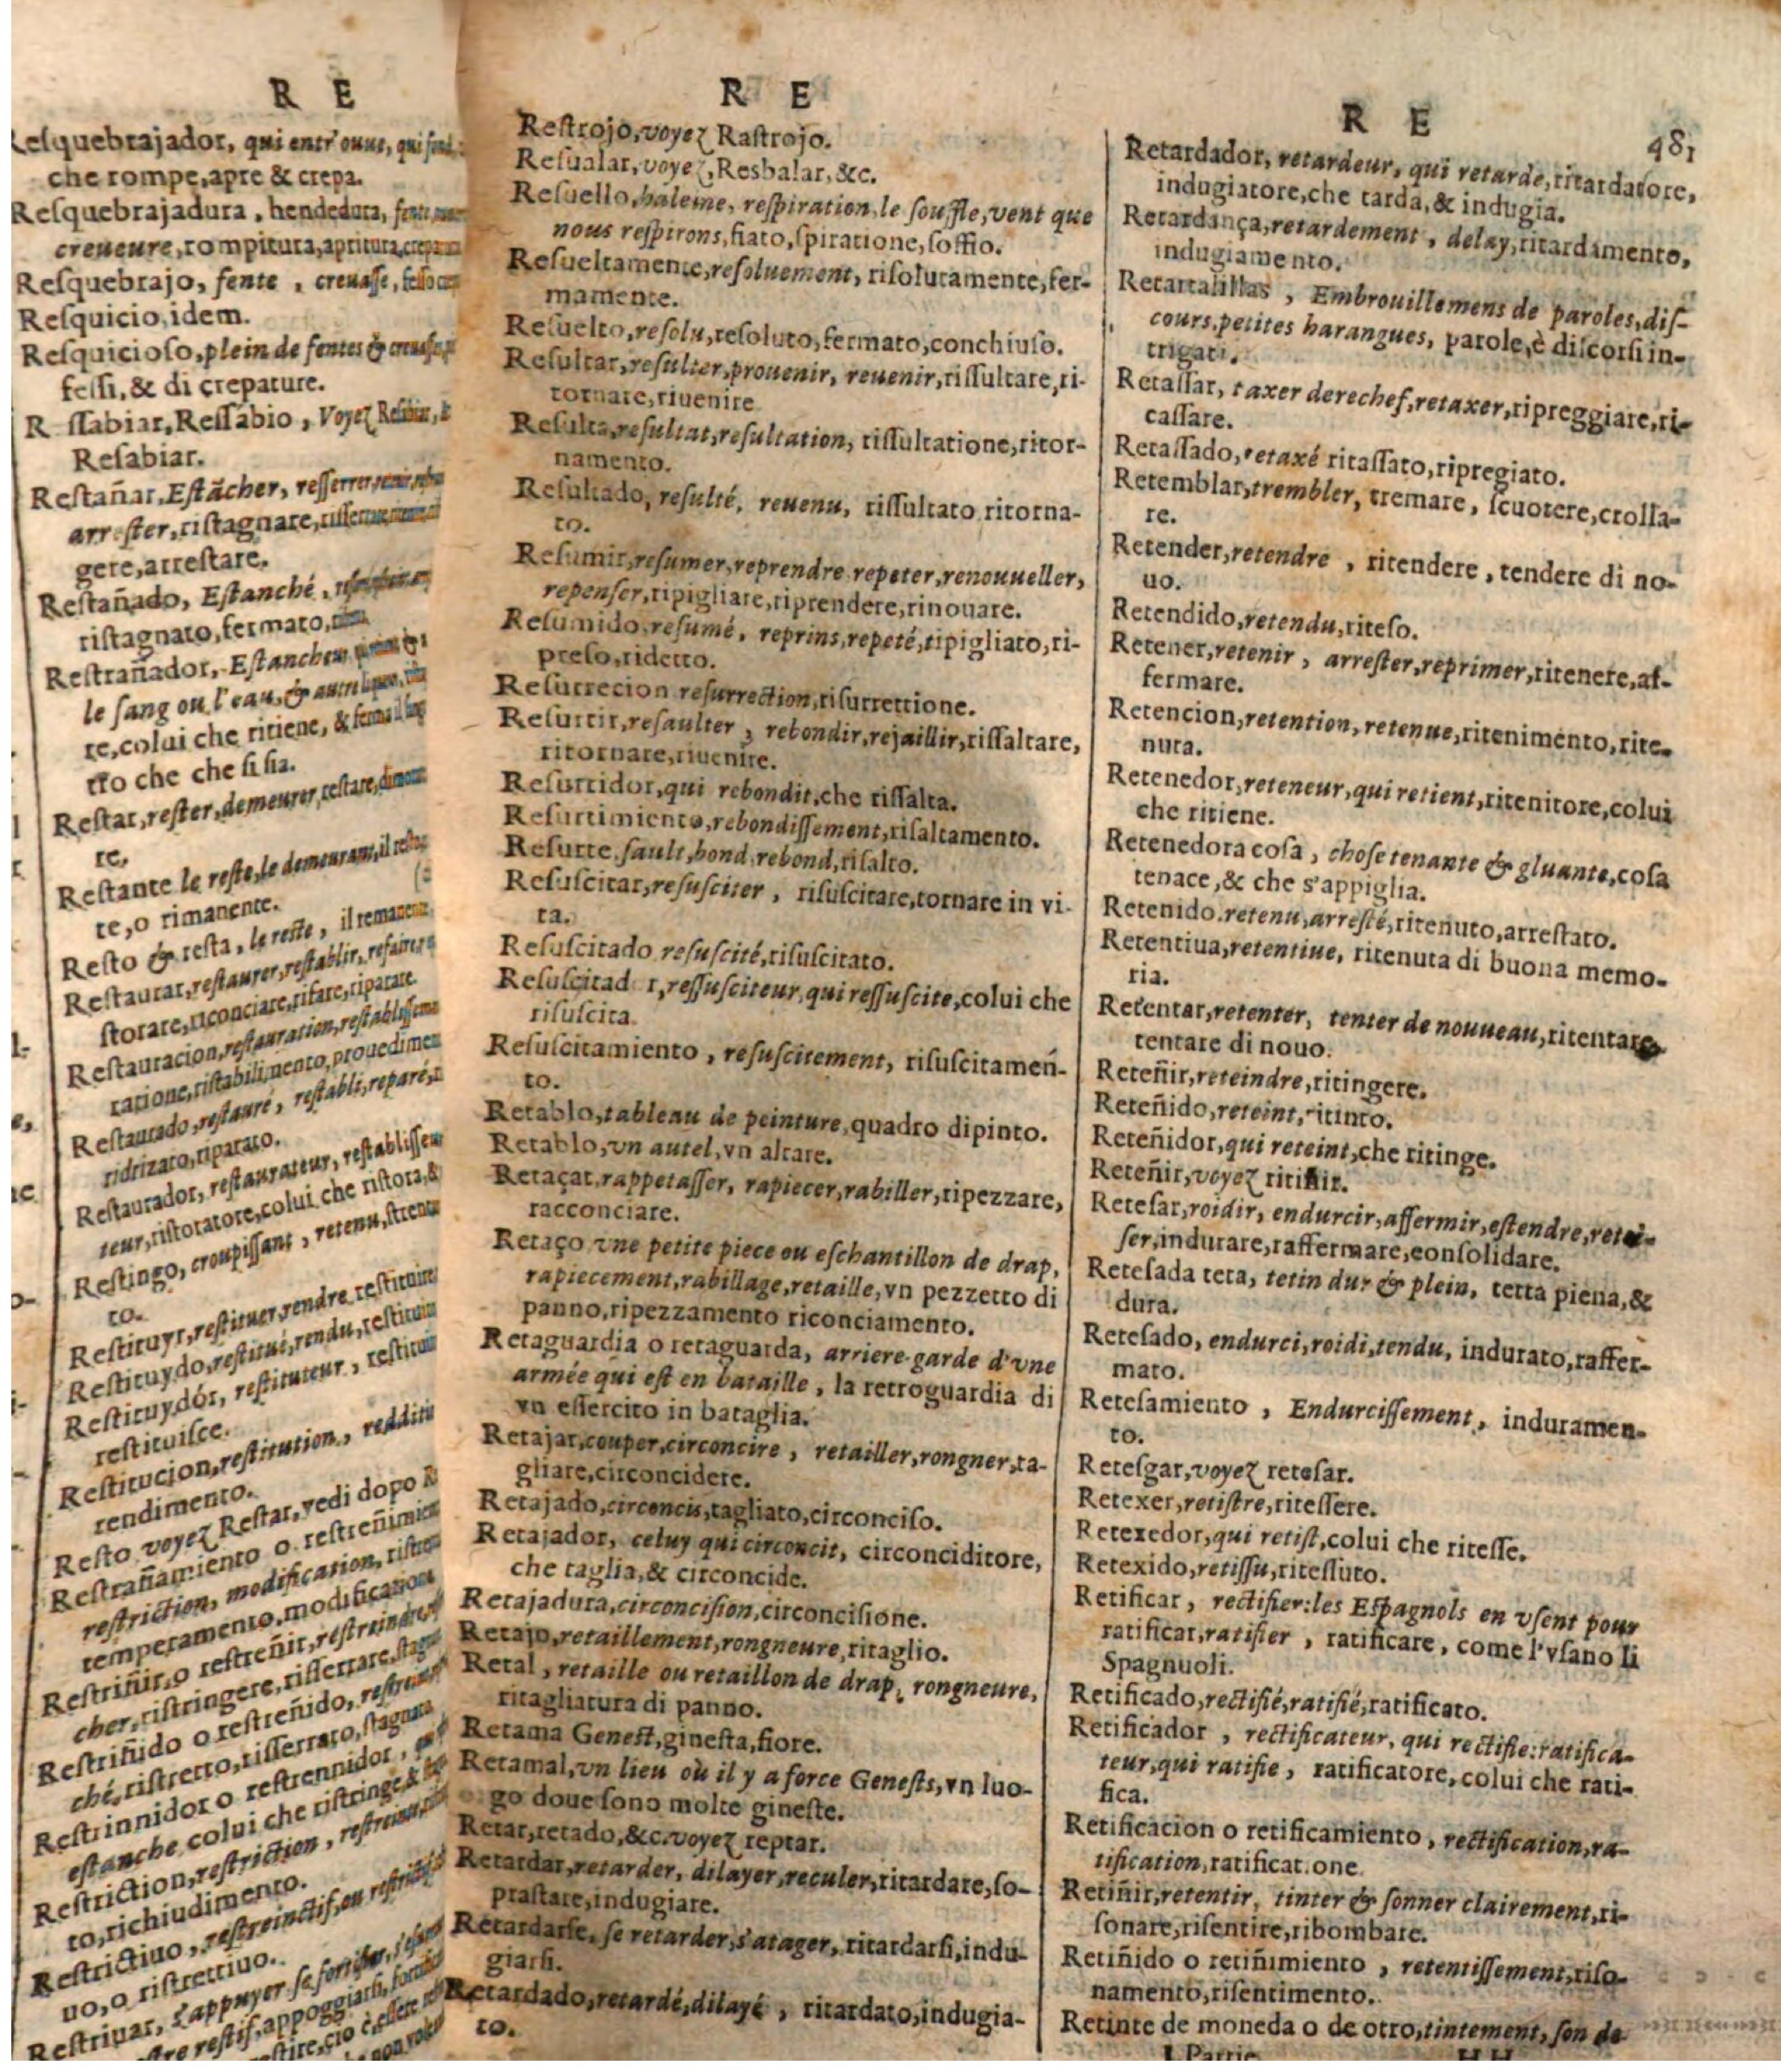 R E
che rompe,apre & crepa.
Reſquebrajadura, hendedura,
creueure,rompitura,apritura,
Reſquebrajo, fente, creuaſſe,
Reſquicio,idem.
Reſquicioſo,plein de fentes &
feſſi,& di crepature.
Reſſabio, Voyez
Reſabiar.
Reſtañar,Eſtãcher, reſſerrer,
riſtagnare,
gere,arreſtare.
Reſtañado, Eſtanché,
riſtagnato,fermato,
Reſtrañador,
le ſang ou l'eau,&
re,colui che ritiene, &
tro che che ſi ſia.
Reſtar,reſter,demeurer,reſtare,
re.
Reſtante le reſte,le demeurant,
te,o rimanente.
Reſto & reſta, le reſte,
Reſtaurar,reſtaurer,reſtablir,refaire,
ſtorare,riconciare,rifare,riparare.
Reſtauracion,reſtauration,
ratione,riſtabilimento,
Reſtaurado,reſtauré, reſtabli,reparé,
ridrizato,riparato.
Reſtaurador, reſtaurateur,
teur,riſtoratore,colui che riſtora,
Reſtingo, croupiſſant, retenu,
to.
Reſtituyr,reſtituer,rendre,
Reſtituydo,reſtitué,rendu,
Reſtituydór, reſtituteur,
reſtituiſce.
Reſtitucion,reſtitution,
rendimento.
Reſto voyez Reſtar,vedi dopo
Reſtrañamiento o
reſtriction, modification,
temperamento,
Reſtriñir,o reſtreñir,
cher,riſtringere,riſſerrare,
Reſtriñido o reſtreñido,
ché,riſtretto,riſſerrato,
Reſtrinnidor o reſtrennidor,
eſtanche,colui che riſtringe,&
Reſtriction,reſtriction,
to,richiudimento.
Reſtrictiuo,
uo,o riſtrettiuo.
Reſtriuar,
R E
Reſtrojo,voyez Raſtrojo.
Reſualar,voyez,Resbalar,&c.
Reſuello,haleine, reſpiration,le ſouffle,vent que
nous reſpirons,fiato,ſpiratione,ſoffio.
Reſueltamente,reſoluement, riſolutamente,fer-
mamente.
Reſuelto,reſolu,reſoluto,fermato,conchiuſo.
Reſultar,reſulter,prouenir, reuenir,riſſultare,ri-
tornare,riuenire
Reſulta,reſultat,reſultation, riſſultatione,ritor-
namento.
Reſultado, reſulté, reuenu, riſſultato ritorna-
to.
Reſumir,reſumer,reprendre repeter,renouueller,
repenſer,ripigliare,riprendere,rinouare.
Reſumido,reſumé, reprins,repeté,ripigliato,ri-
preſo,ridetto.
Reſurrecion reſurrection,riſurrettione.
Reſurtir,reſaulter, rebondir,rejaillir,riſſaltare,
ritornare,riuenire.
Reſurtidor,qui rebondit,che riſſalta.
Reſurtimiento,rebondiſſement,riſaltamento.
Reſurte ſault,bond,rebond,riſalto.
Reſuſcitar,reſuſciter, riſuſcitare,tornare in vi-
ta.
Reſuſcitado reſuſcité,riſuſcitato.
Reſuſcitad r,reſſuſciteur,qui reſſuſcite,colui che
riſuſcita.
Reſuſcitamiento, reſuſcitement, riſuſcitameñ-
to.
Retablo,tableau de peinture,quadro dipinto.
Retablo,vn autel,vn altare.
Retaçar,rappetaſſer, rapiecer,rabiller,ripezzare,
racconciare.
Retaço vne petite piece ou eſchantillon de drap,
rapiecement,rabillage,retaille,vn pezzetto di
panno,ripezzamento riconciamento.
Retaguardia o retaguarda, arriere-garde d'vne
armée qui eſt en bataille, la retroguardia di
vn eſſercito in bataglia.
Retajar,couper,circoncire, retailler,rongner,ta-
gliare,circoncidere.
Retajado,circoncis,tagliato,circonciſo.
Retajador, celuy qui circoncit, circonciditore,
che taglia,& circoncide.
Retajadura,circonciſion,circonciſione.
Retajo,retaillement,rongneure,ritaglio.
Retal, retaille ou retaillon de drap, rongneure,
ritagliatura di panno.
Retama Geneſt,gineſta,fiore.
Retamal,vn lieu où il y a force Geneſts,vn luo-
go doue ſono molte gineſte.
Retar,retado,&c.voyez reptar.
Retardar,retarder, dilayer,reculer,ritardare,ſo-
praſtare,indugiare.
Retardarſe, ſe retarder,s'atager, ritardarſi,indu-
giarſi.
Retardado,retardé,dilayé, ritardato,indugia-
to.
R E
481
Retardador, retardeur, qui retarde,ritardatore,
indugiatore,che tarda,& indugia.
Retardança,retardement, delay,ritardamento,
indugiamento.
Retartalillas, Embrouillemens de paroles,diſ-
cours,petites harangues, parole,è diſcorſi in-
trigati.
Retaſſar, taxer derechef,retaxer,ripreggiare,ri-
caſſare.
Retaſſado,retaxé ritaſſato,ripregiato.
Retemblar,trembler, tremare, ſcuotere,crolla-
re.
Retender,retendre, ritendere, tendere di no-
uo.
Retendido,retendu,riteſo.
Retener,retenir, arreſter,reprimer,ritenere,af-
fermare.
Retencion,retention, retenue,ritenimento,rite-
nuta.
Retenedor,reteneur,qui retient,ritenitore,colui
che ritiene.
Retenedora coſa, choſe tenante & gluante,coſa
tenace,& che s'appiglia.
Retenido,retenu,arreſté,ritenuto,arreſtato.
Retentiua,retentiue, ritenuta di buona memo-
ria.
Retentar,retenter, tenter de nouueau,ritentare
tentare di nouo.
Reteñir,reteindre,ritingere.
Reteñido,reteint,ritinto.
Reteñidor,qui reteint,che ritinge.
Reteñir,voyez ritiñir.
Reteſar,roidir, endurcir,affermir,eſtendre,retei-
ſer,indurare,raffermare,conſolidare.
Reteſada teta, tetin dur & plein, tetta piena,&
dura.
Reteſado, endurci,roidi,tendu, indurato,raffer-
mato.
Reteſamiento, Endurciſſement, induramen-
to.
Reteſgar,voyez reteſar.
Retexer,retiſtre,riteſſere.
Retexedor,qui retiſt,colui che riteſſe.
Retexido,retiſſu,riteſſuto.
Retificar, rectifier:les Eſpagnols en vſent pour
ratificar,ratifier, ratificare, come l'vſano li
Spagnuoli.
Retificado,rectifié,ratifié,ratificato.
Retificador, rectificateur, qui rectifie:ratifica-
teur,qui ratifie, ratificatore, colui che rati-
fica.
Retificacion o retificamiento, rectification,ra-
tification,ratificat.one
Retiñir,retentir, tinter & ſonner clairement,ri-
ſonare,riſentire,ribombare.
Retiñido o retiñimiento, retentiſſement,riſo-
namento,riſentimento.
Retinte de moneda o de otro,tintement, ſon de
I. Partie
HH